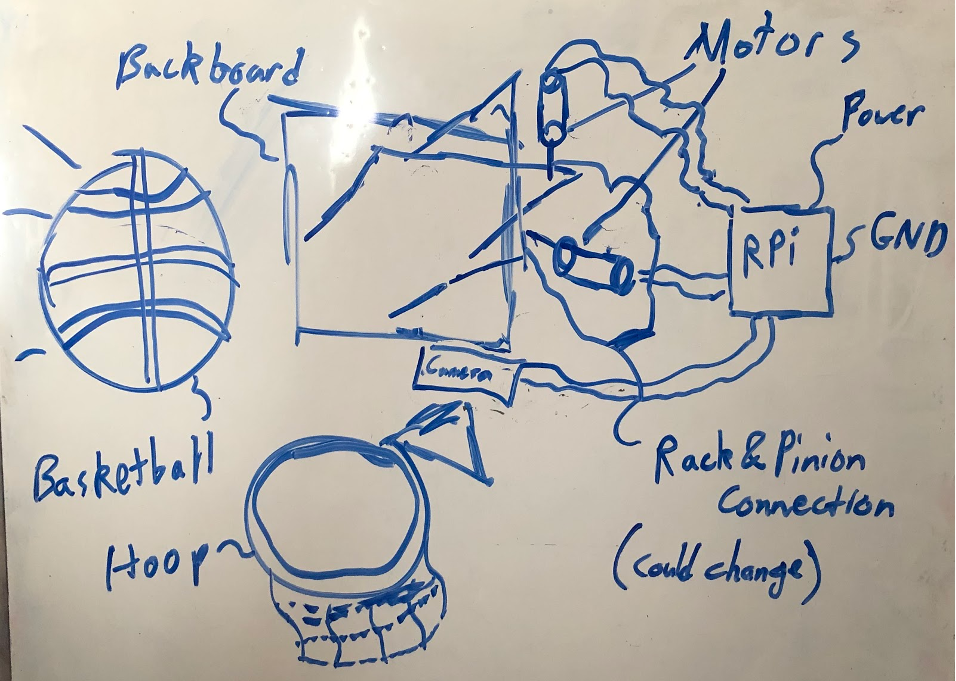 Backboard
Motors
Power
RPi
GND
Camera
Basketball
Hoop
Rack & Pinion
Connection
(could change)